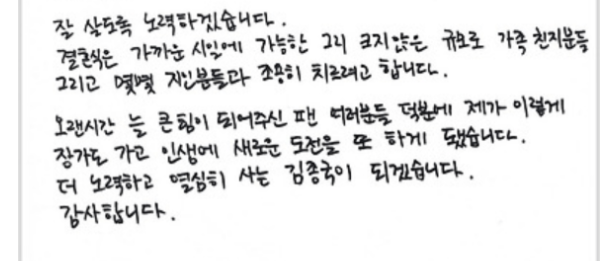 잘 살도록 노력하겠습니다.
결혼식은 가까운 시일에 가능한 그리 크지않은 규모로 가족 친지분들
그리고 몇몇 지인분들과 조용히 치르려고 합니다.
오랜시간 늘 큰힘이 되어주신 팬 여러분들 덕분에 제가 이렇게
장가도 가고 인생에 새로운 도전을 또 하게 됐습니다.
더 노력하고 열심히 사는 김종국이 되겠습니다.
감사합니다.